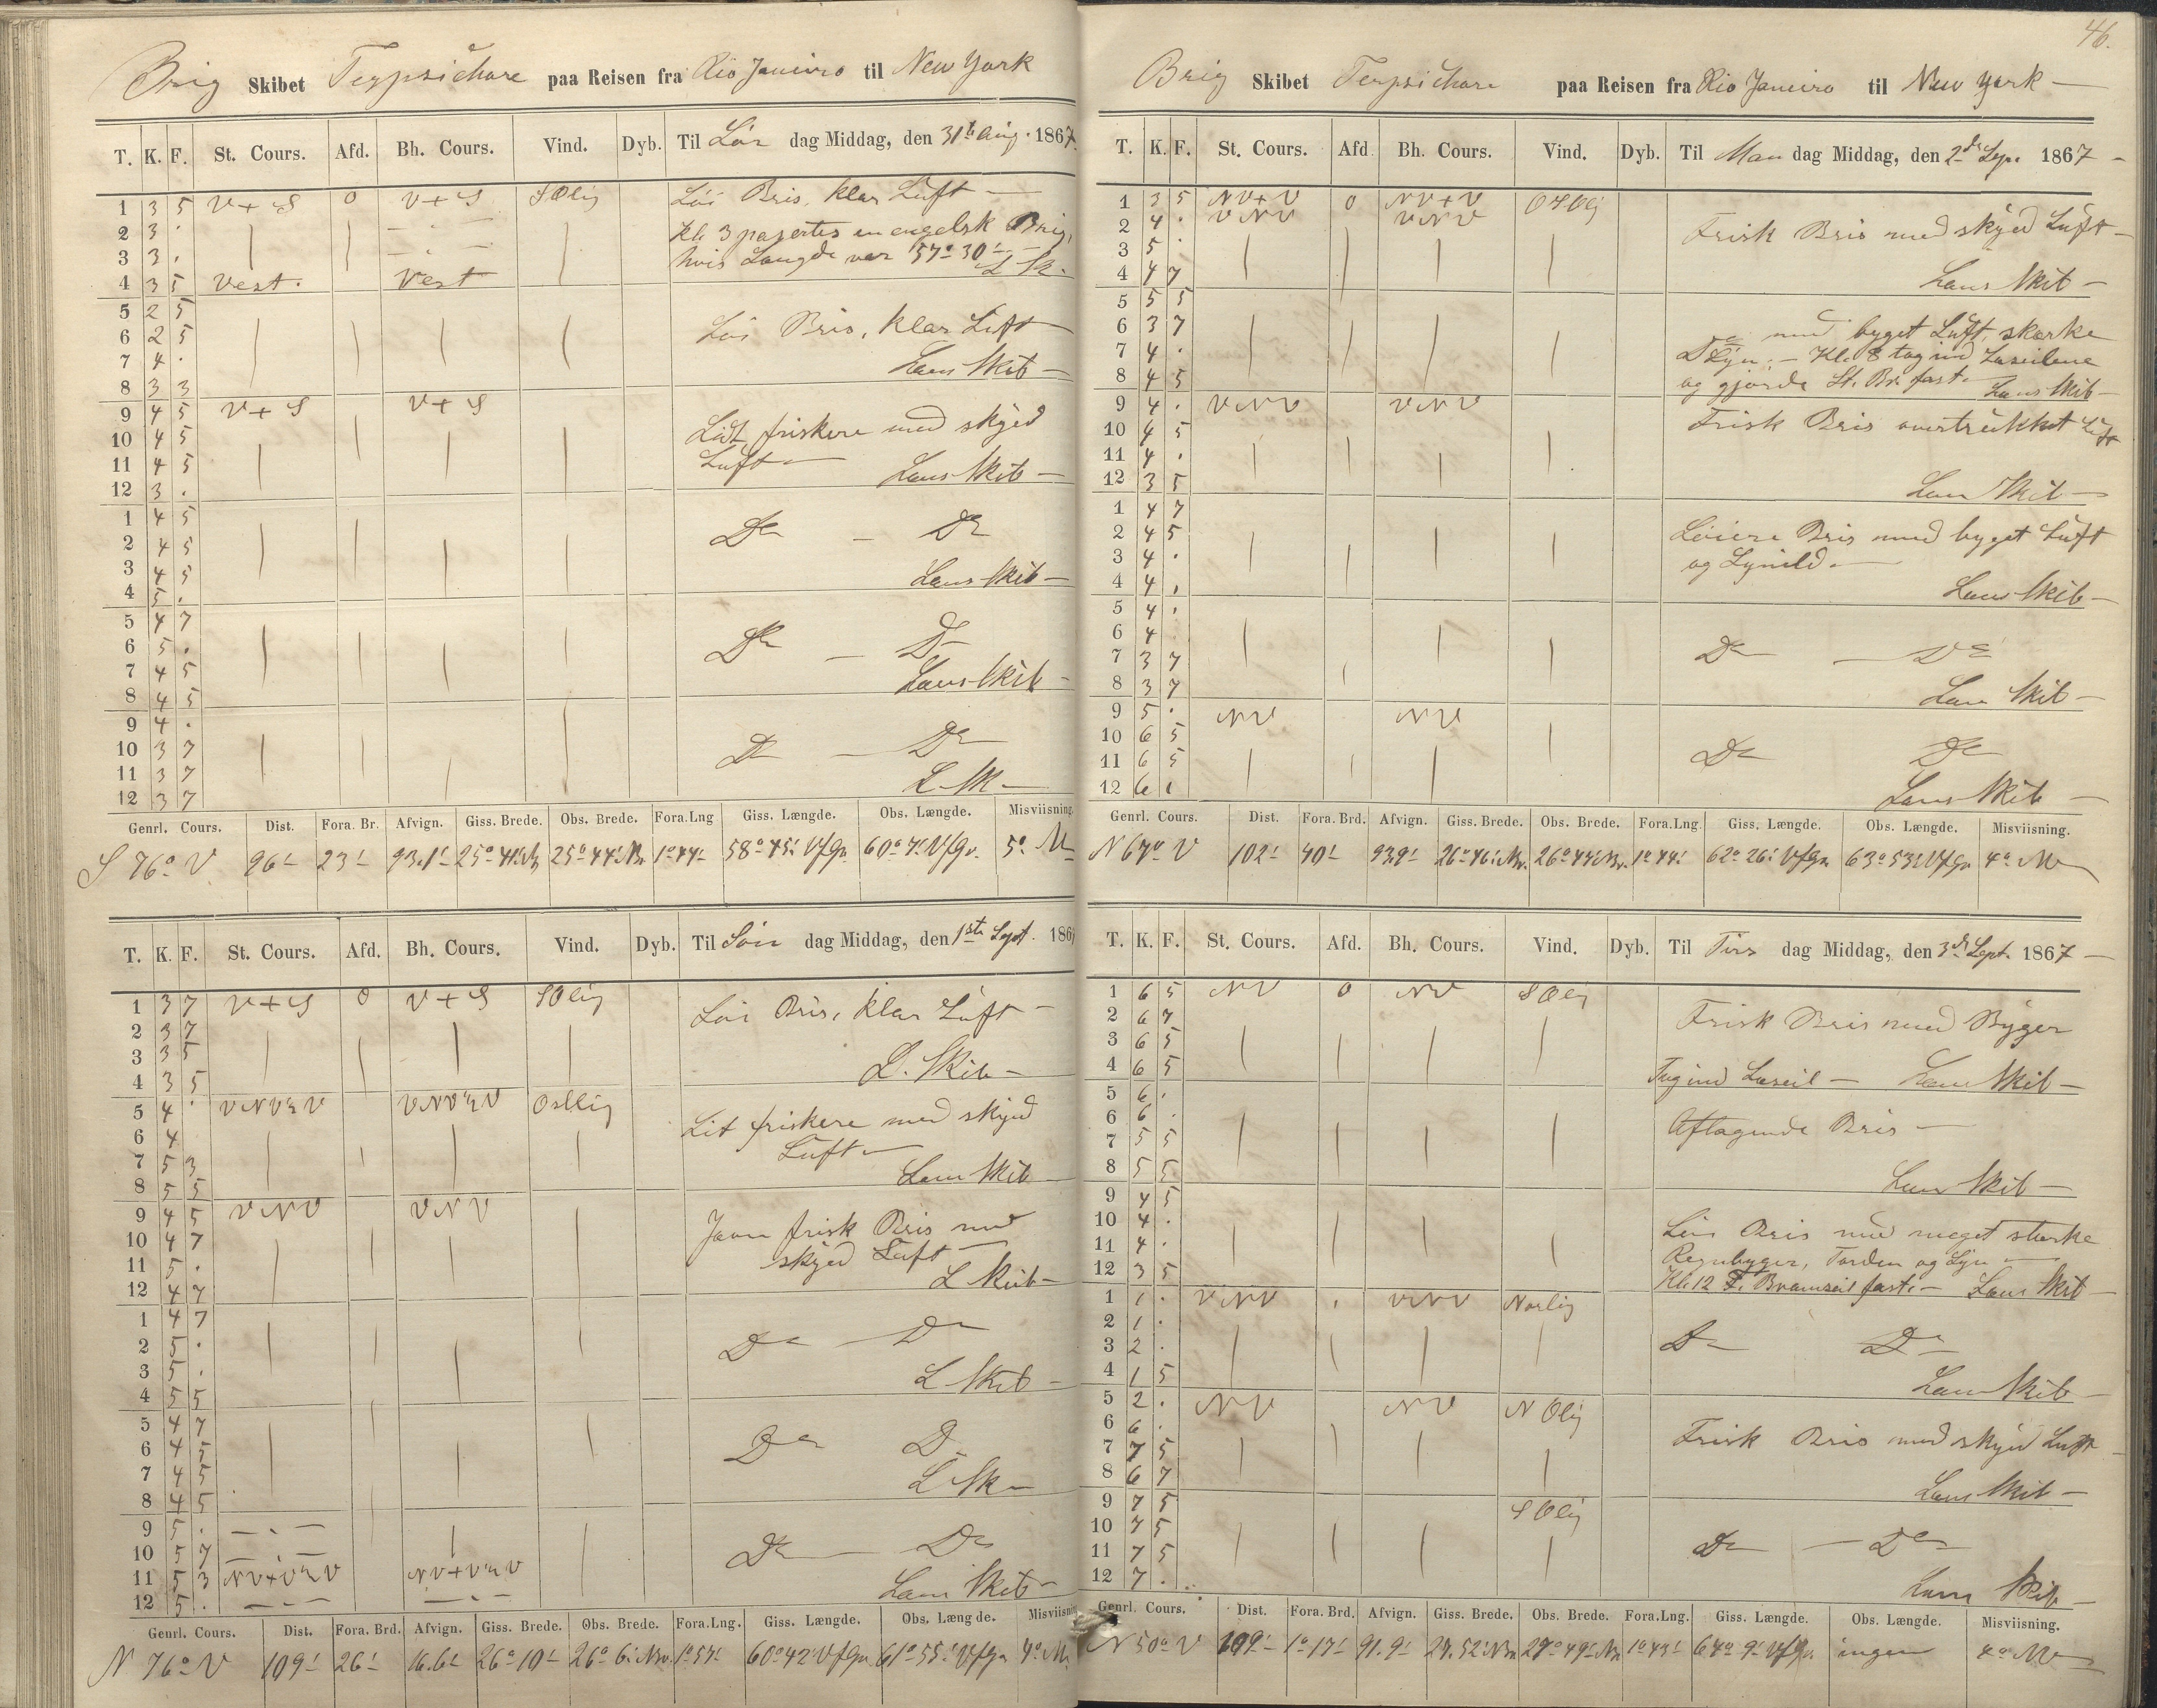 Brig Skibet Terpsichore paa Reisen fra Rio Janeiro til New York
T. K. F. St. Cours. Afd. Bh. Cours. Vind. Dyb. Til Lör dag Middag, den 31te Aug. 1867.
1 3 5 V+S 0 V+S SOlig Löi Bris, klar Luft —
2 3 . Kl. 3 pasertes en engelsk Brig,
3 3 . hvis Längde var 57° 30'
4 3 5 Vest. Vest L Sk.
5 2 5
6 2 5 Löi Bris, klar Luft
7 4 .
8 3 3 Laus Skib —
9 4 5 V+S V+S
10 4 5 Lidt friskere med skyed
11 4 5 Luft —
12 3 . Laus Skib —
1 4 5
2 4 5 Do — Do
3 4 5
4 5 . Laus Skib —
5 4 7
6 5 . Do — Do
7 4 5
8 4 5 Laus Skib —
9 4 .
10 3 7 Do — Do
11 3 7
12 3 7 L Sk —
Genrl. Cours. Dist. Fora. Br. Afvign. Giss. Brede. Obs. Brede. Fora.Lng Giss. Længde. Obs. Længde. Misviisning.
S 76° V 96' 23' 93.1' 25° 41' Br 25° 44' Br. 1° 44' 58° 45' 60° 7' 5°
T. K. F. St. Cours. Afd. Bh. Cours. Vind. Dyb. Til Sön dag Middag, den 1ste Sept. 1867
1 3 7 V+S 0 V+S SOlig Löi Bris, klar Luft —
2 3 7
3 3 5
4 3 5 L. Skib —
5 4 . VNV½V VNV½V Ostlig
6 4 Lit friskere med skyed
7 5 3 Luft —
8 5 5 Laus Skib
9 4 5 VNV VNV
10 4 7 Javn frisk Bris med
11 5 . skyed Luft —
12 4 7 L Skib —
1 4 7
2 5 . Do — Do
3 5 .
4 5 5 L Skib —
5 4 7
6 4 5 Do Do
7 4 5
8 4 5 L Sk —
9 5 .
10 5 7 Do — Do
11 5 3 NV+V½V NV+V½V
12 5 . Laus Skib —
Genrl. Cours. Dist. Fora. Brd. Afvign. Giss. Brede. Obs. Brede. Fora.Lng. Giss. Længde. Obs. Længde. Misviisning
N 76° V 109' 26' 26° 10' 26° 6' 1° 57' 60° 42' 61° 55' 4°
46.
Brig Skibet Terpsichore paa Reisen fra Rio Janeiro til New York —
T. K. F. St. Cours. Afd Bh. Cours. Vind. Dyb. Til Man dag Middag, den 2de Sept. 1867 —
1 3 5 NV+V 0 NV+V
2 4 . VNV VNV Frisk Bris med skyed Luft —
3 5 .
4 4 7 Laus Skib —
5 5 5
6 3 7 Do med byget Luft, stærke
7 4 . Lyn. — Kl. 8 tog ind Læseilene
8 4 5 og gjorde St. Br. fast. Laus Skib —
9 4 . VNV VNV Frisk Bris overtrukket Luft
10 4 5
11 4 .
12 3 5 Laus Skib —
1 4 7
2 4 5 Löiere Bris med byget Luft
3 4 . og Lynild. —
4 4 . Laus Skib —
5 4 .
6 4 .
7 3 7 Do — Do
8 3 7 Laus Skib —
9 5 . NV NV
10 6 5
11 6 5 Do Do
12 6 1 Laus Skib —
Genrl. Cours. Dist. Fora. Brd. Afvign. Giss. Brede. Obs. Brede. Fora.Lng. Giss. Længde. Obs. Længde. Misviisning.
N 67° V 102' 40' 93.9' 26° 46' Br. 26° 44' Br. 1° 44' 62° 26' 63° 53' 4°
T. K. F. St. Cours. Afd. Bh. Cours. Vind. Dyb. Til Tirs dag Middag, den 3de Sept. 1867 —
1 6 5 NV 0 NV SOlig
2 6 7 Frisk Bris med Byger
3 6 5
4 6 5 Tog ind Læseil — Laus Skib —
5 6 .
6 6 . Aftagende Bris —
7 5 5
8 5 5 Laus Skib —
9 4 5
10 4 . Löi Bris med meget stærke
11 4 . Regnbyger, Torden og Lyn —
12 3 5 Kl. 12 F. Bramseil fast. — Laus Skib —
1 1 . VNV . VNV Norlig
2 1 .
3 2 . Do Do
4 1 5 Laus Skib —
5 2 . NV NV NOlig
6 6 . Frisk Bris med skyed Luft —
7 7 5
8 6 7 Laus Skib —
9 7 5 SOlig
10 7 5
11 7 5 Do — Do
12 7 . Laus Skib —
Genrl. Cours. Dist. Fora. Brd. Afvign. Giss. Brede. Obs. Brede. Fora.Lng. Giss. Længde. Obs. Længde. Misviisning.
N 50° V 109' 1° 17' 91.9' 27. 52' 27° 49' 1° 43' 64° 9' ingen 4°